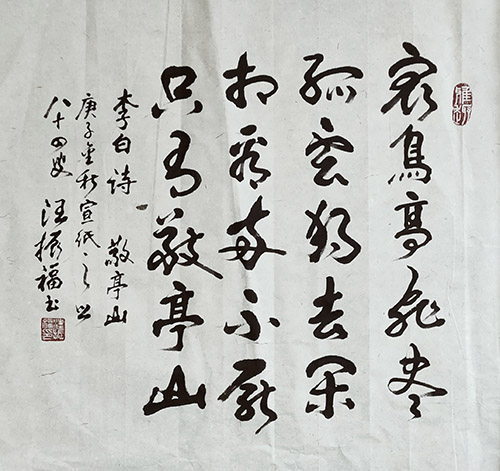 众鸟高飛尽
孤雲独去闲
相看两不厌
只有敬亭山
李白诗 敬亭山
庚子金秋宣纸之
八十四叟 汪振福书